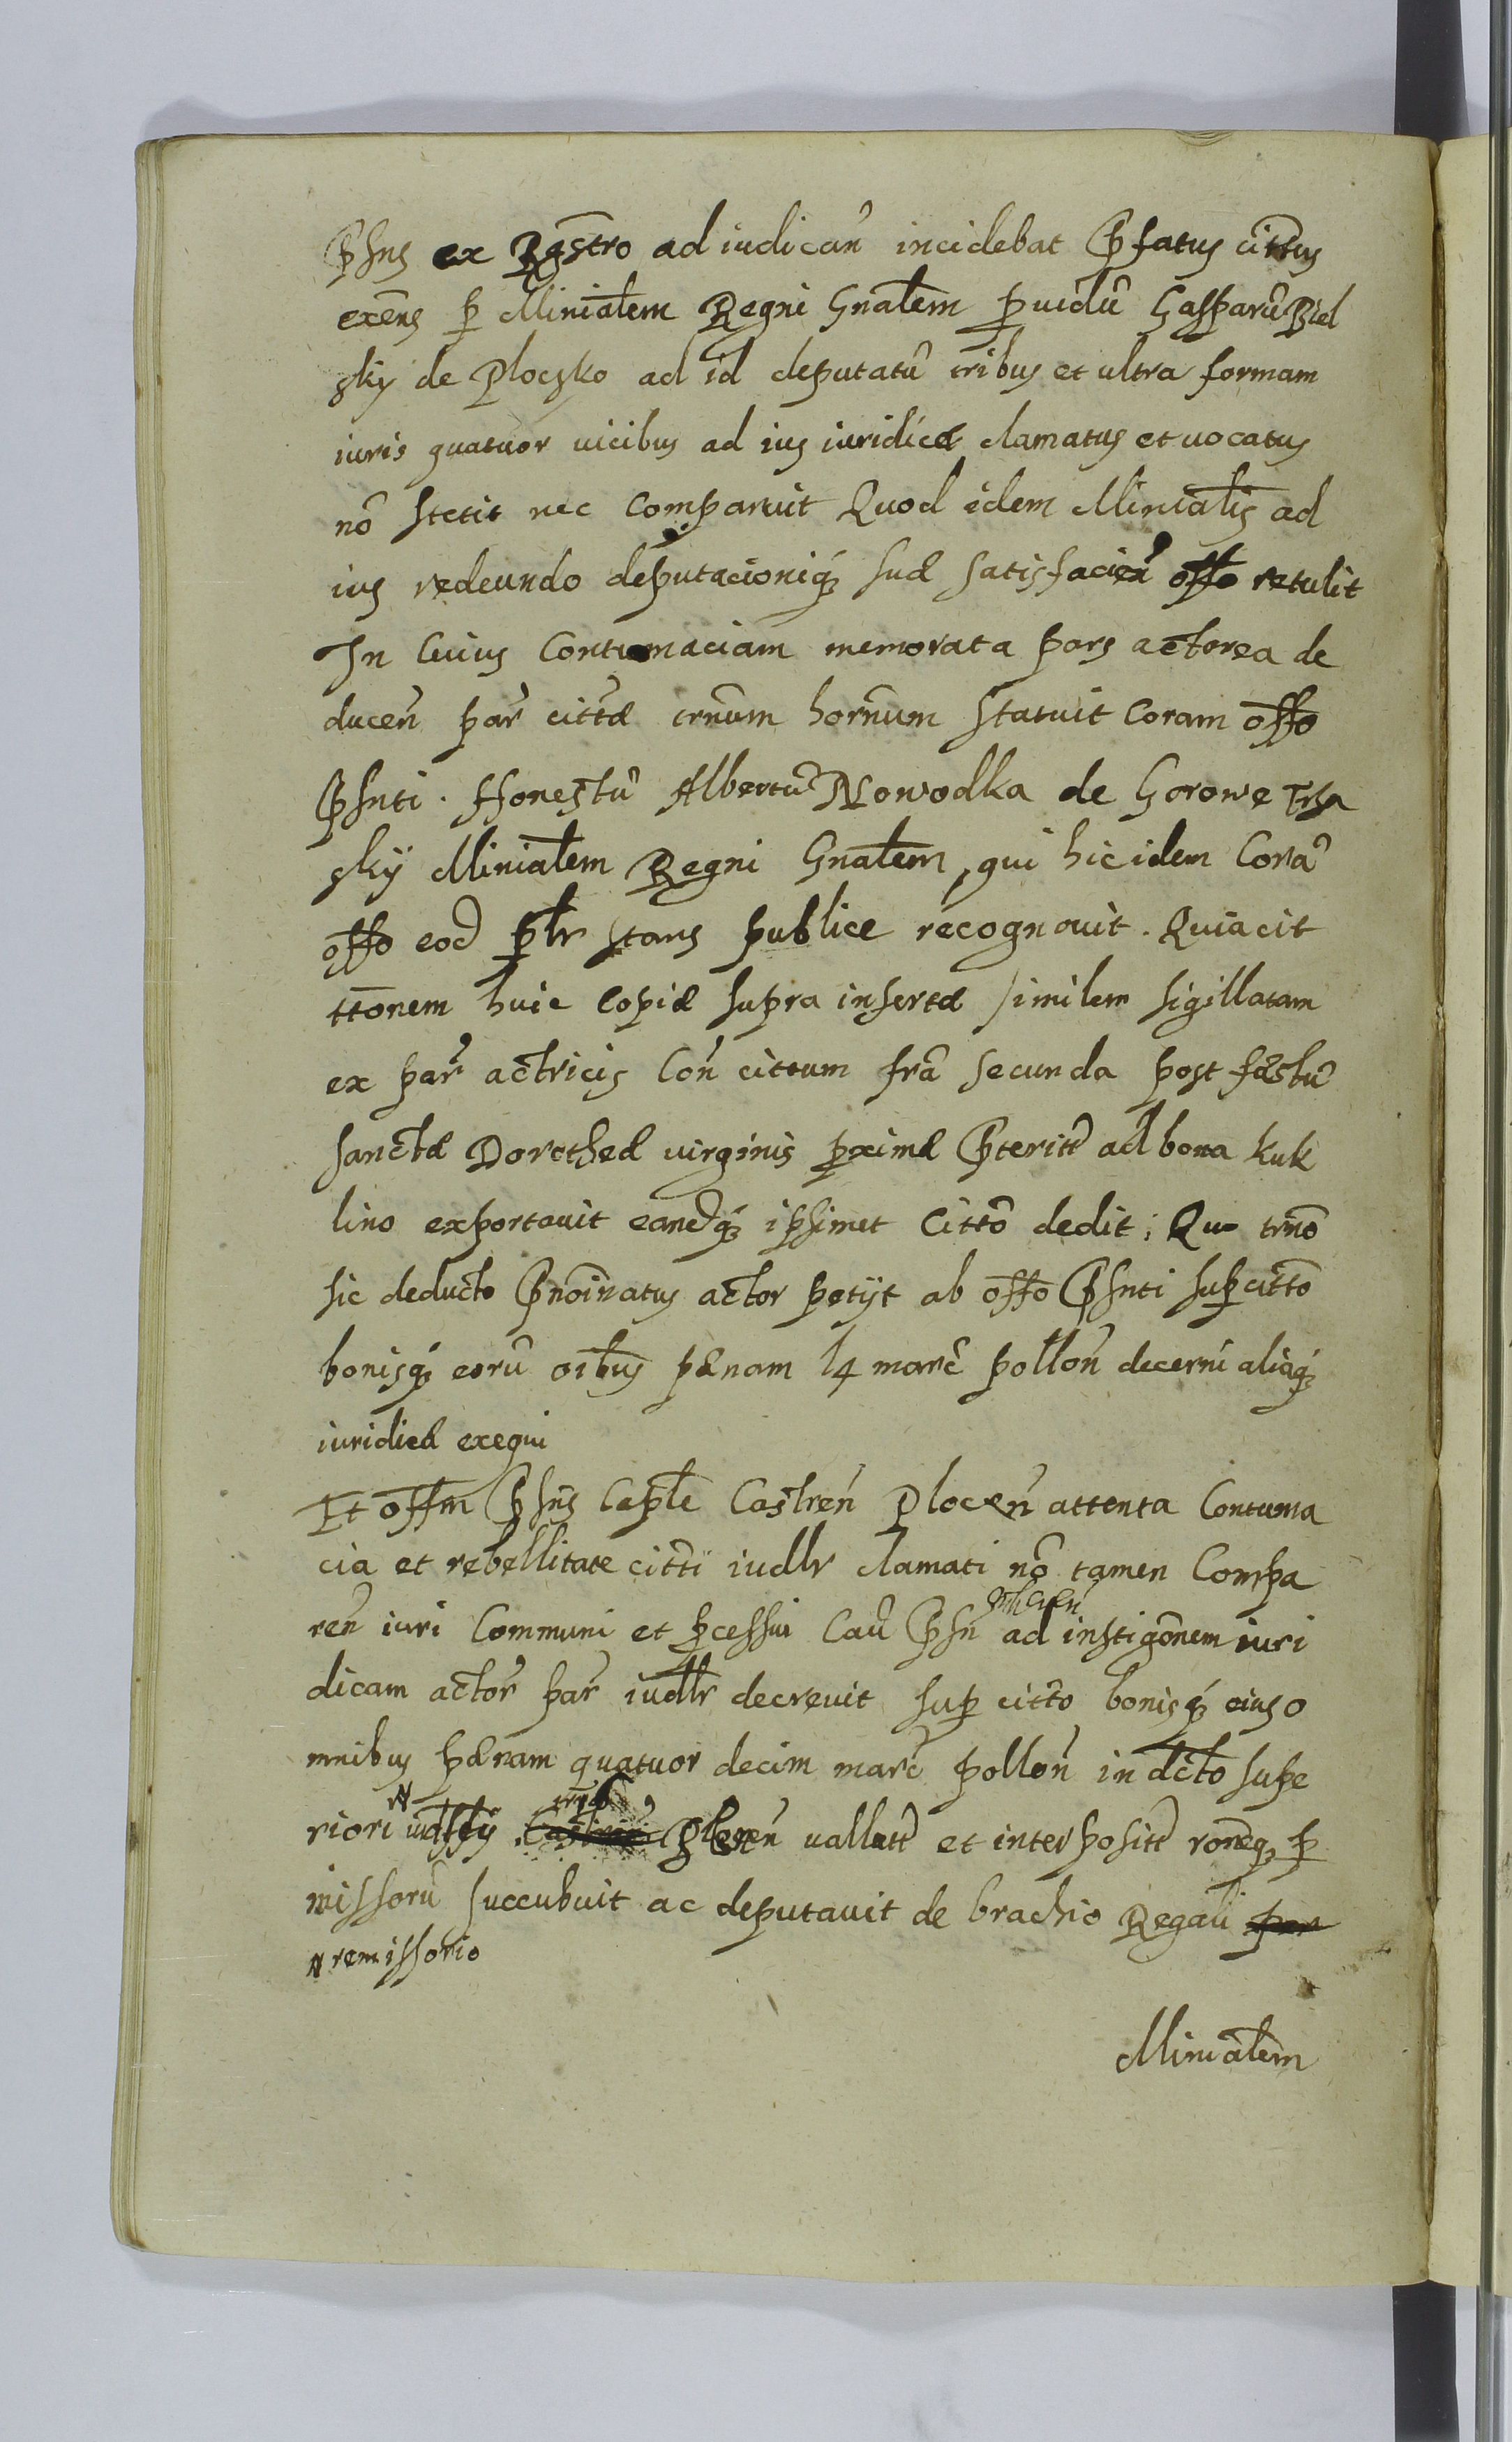 Pñsns ex Rgāstro ad iudicañ incidebat Pfatus cittus
exeñs p Miniałem Regni Gnałem puidũ Gasparũ Biel
sky de Ploczko ad id deputatũ tribus et ultra formam
iuris quatuor uicibus ad ius iuridicæ clamatus et uocatus
nõ stetit nec Comparuit Quod idem Miniałis ad
ius redeundo deputacioniq; suæ satisfacień offo retulit
In Cuius Contumaciam memorata pars actorea de
duceñ par cittæ trñum horñum Statuit Coram offo
Psnti. Honestũ Albertũ Nowodka de Gorowe Trza
sky Miniałem Regni Gnałem, qui hic idem Corã
offo eod płr stans publice recognouit. Quia cit
ttõnem huic Copiæ supra insertæ similem sigillatam
ex par actricis Coñ cittum frã secunda post fæstũ
sanctæ Dorotheæ virginis pximæ Pteritt ad bona Kuk
lino exportauit eandq; ipsimet Citto dedit; Quo trño
sic deducto Pnoĩnatus actor petijt ab offo Psnti sup citto
bonisq; eorũ oĩbus pænam 14 marc pollon decerni aliaq;
iuridicæ exequi
Et offm Psñs Capłe Castreñ Ploceñ attenta Contuma
cia et rebellitate citti iudlr clamati nõ tamen Compa
reñ iuri Communi et pcessui Cau Psñ ad instigõnem iuri
dicam actor par iudlr decreuit sup citto bonisq; eius o
mnibus pænam quatuor decim marc polloñ in dcto supe
riori Ploceñ uallatt et interpositt roneq; p
missorũ succubuit ac deputauit de brachio Regali
remissorio
Miniałem